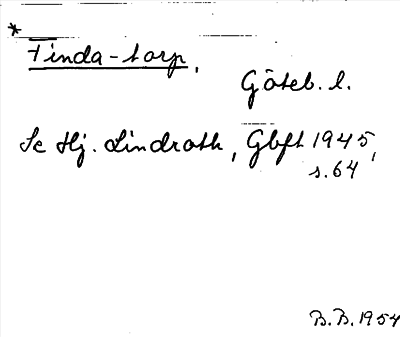 * Finda-torp,
Göteb. l.
Se Hj. Lindroth, Gbft 1945,
s. 64
B.B. 1954